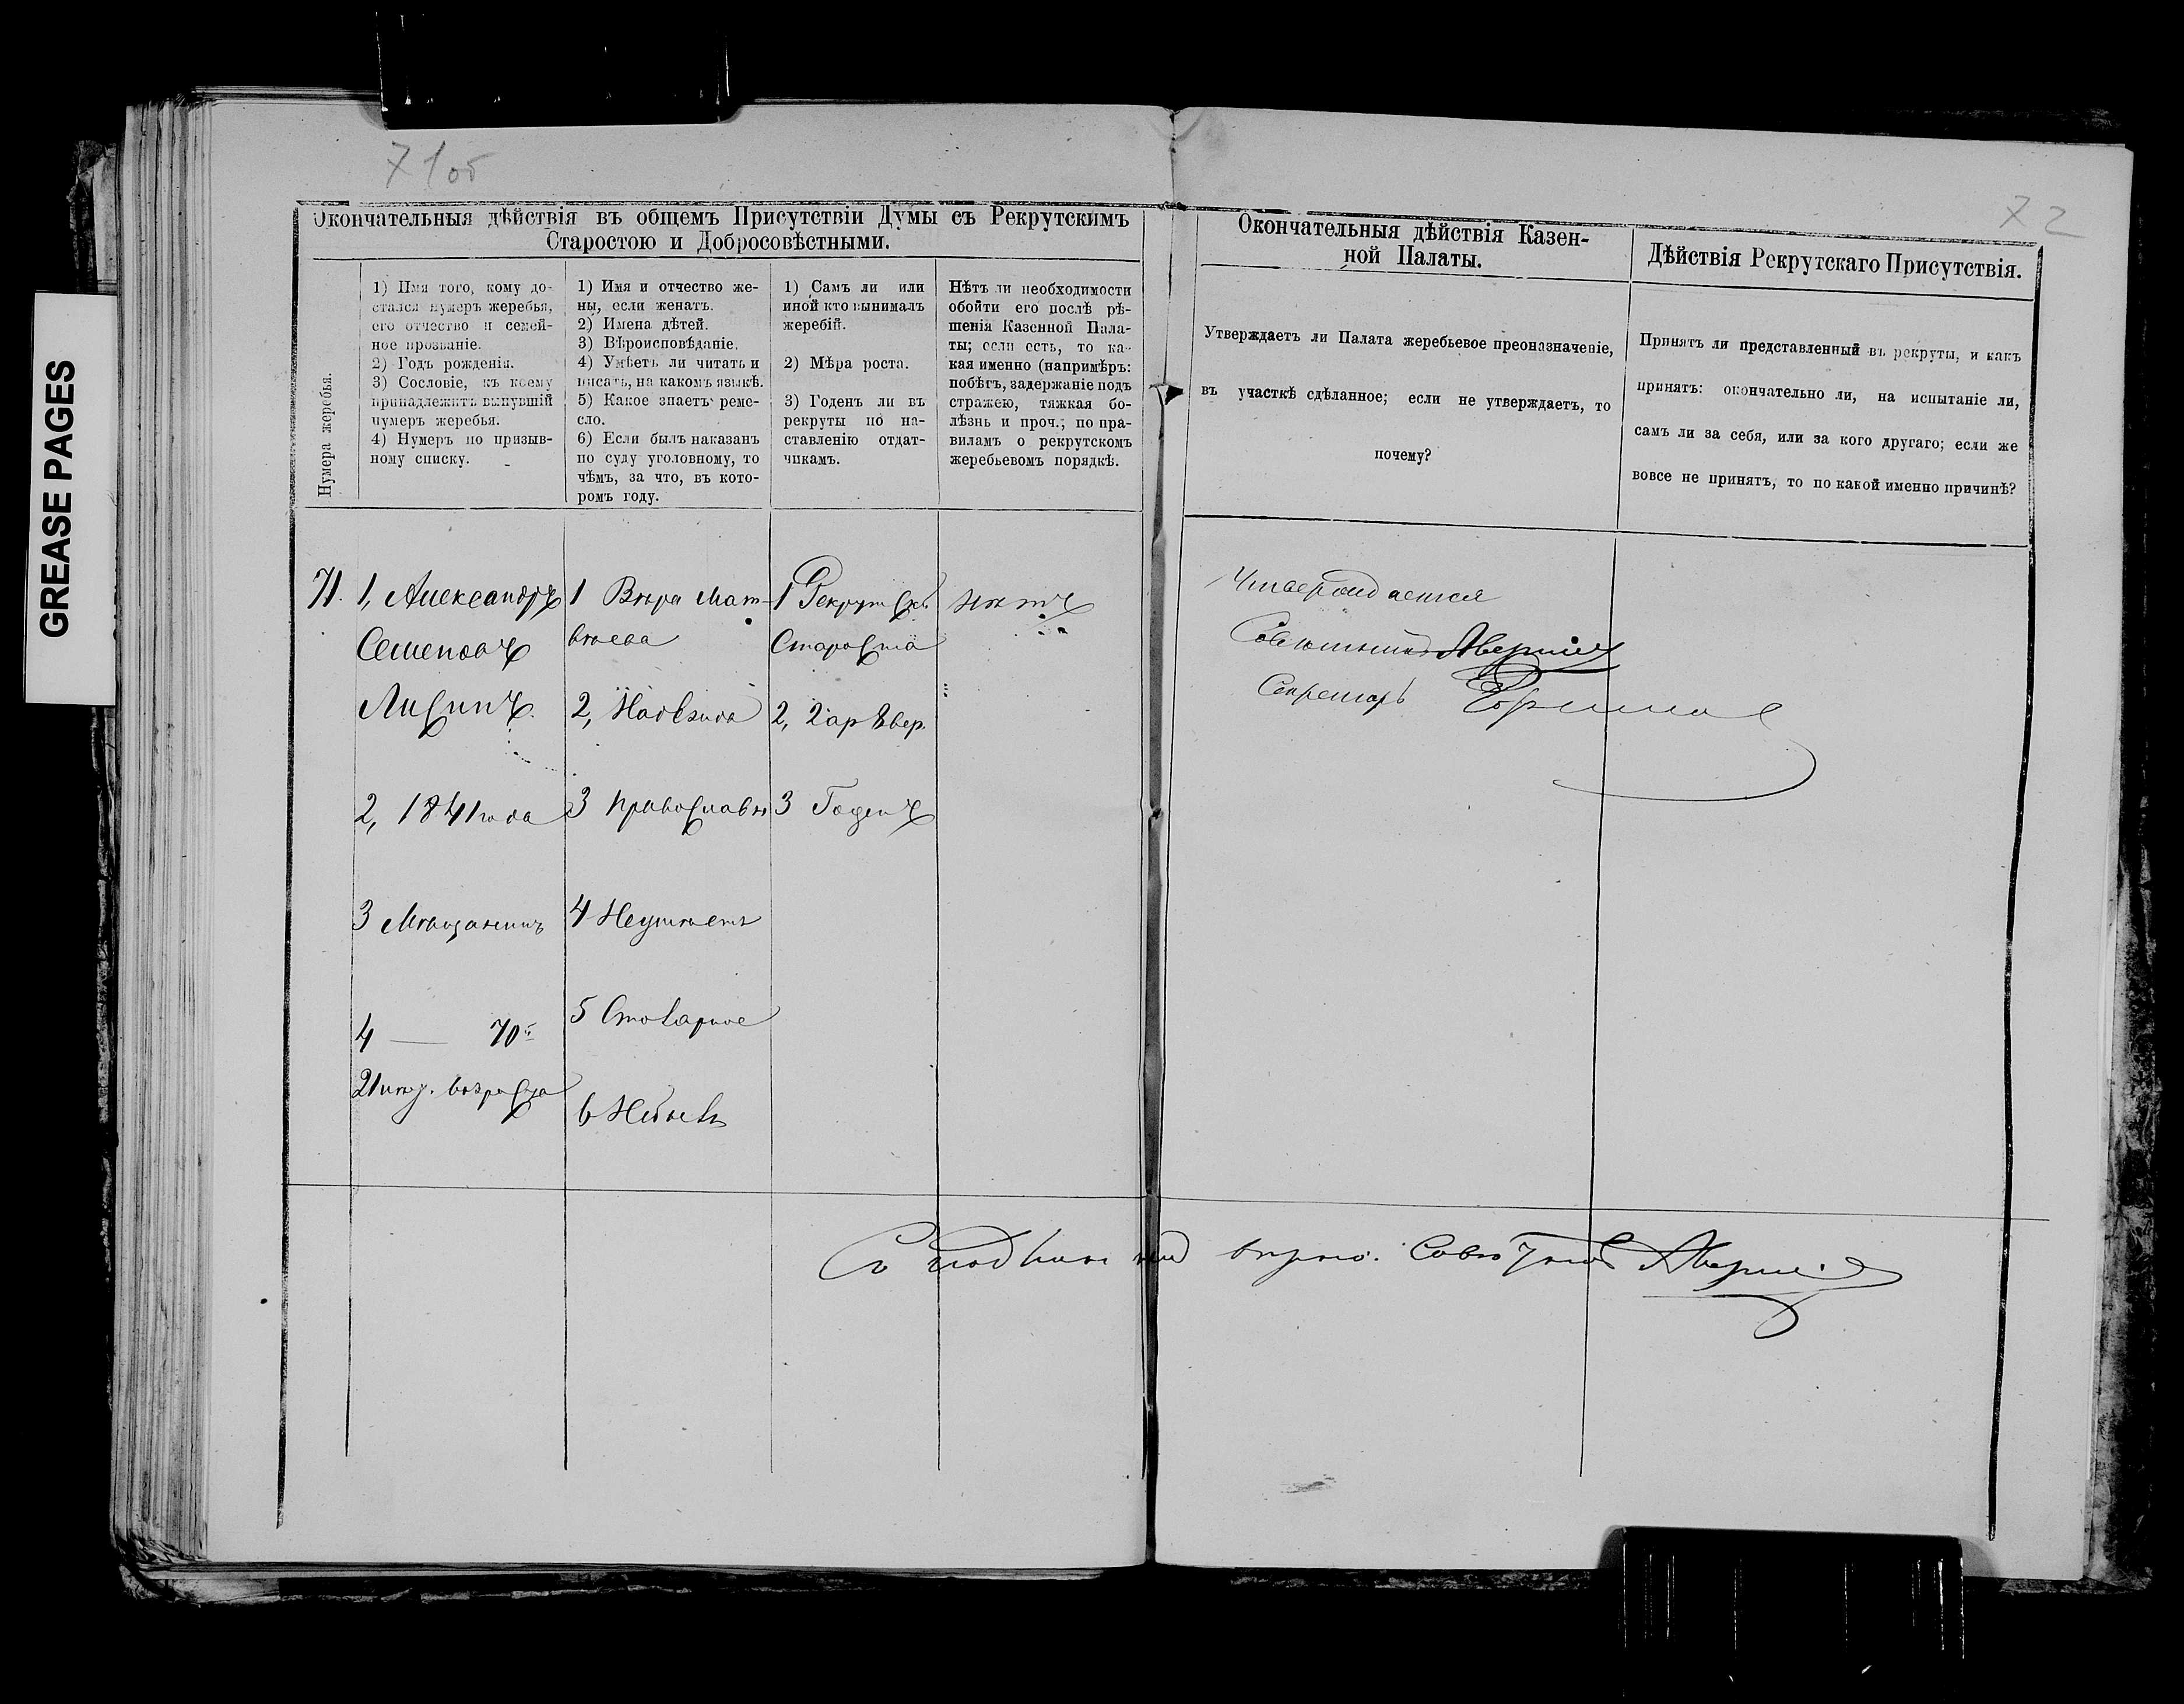 GREASE PAGES
71об
72
Окончательныя дѣйствія въ общемъ Присутствіи Думы съ Рекрутскимъ
Старостою и Добросовѣстными.
Нумера жеребья.
1) Имя того, кому до-
стался нумеръ жеребья,
его отчество и семей-
ное прозваніе.
2) Годъ рожденія.
3) Сословіе, къ коему
принадлежитъ вынувшій
нумеръ жеребья.
4) Нумеръ по призыв-
ному списку.
1) Имя и отчество же-
ны, если женатъ.
2) Имена дѣтей.
3) Вѣроисповѣданіе.
4) Умѣетъ ли читать и
писать, на какомъ языкѣ.
5) Какое знаетъ реме-
сло.
6) Если былъ наказанъ
по суду уголовному, то
чѣмъ, за что, въ кото-
ромъ году.
1) Самъ ли или
иной кто вынималъ
жеребій.
2) Мѣра роста.
3) Годенъ ли въ
рекруты по на-
ставленію отдат-
чикамъ.
Нѣтъ ли необходимости
обойти его послѣ рѣ-
шенія Казенной Пала-
ты; если есть, то ка-
кая именно (напримѣръ:
побѣгъ, задержаніе подъ
стражею, тяжкая бо-
лѣзнь и проч.; по пра-
виламъ о рекрутскомъ
жеребьевомъ порядкѣ.
Окончательныя дѣйствія Казен-
ной Палаты.
Утверждаетъ ли Палата жеребьевое преоназначеніе,
въ участкѣ сдѣланное; если не утверждаетъ, то
почему?
Дѣйствія Рекрутскаго Присутствія.
Принятъ ли представленный въ рекруты, и какъ
принятъ: окончательно ли, на испытаніе ли,
самъ ли за себя, или за кого другаго; если же
вовсе не принятъ, то по какой именно причинѣ?
71.
1, Александръ
Семеновъ
Лисинъ.
2, 1841 года
3 Мѣщанинъ
4 — 70й
21 возраста
1 Вѣра Мат-
вѣева
2, Надежда
3 Православн
4 Неумѣетъ
5 Столарное
6 Небылъ
1 Рекрутскъ
Староста
2, 2 ар 8 вер.
3 Годенъ
нѣтъ
Утверждается
Совѣтникъ
Секретарь
Съ подлиннымъ вѣрно. Совѣтникъ